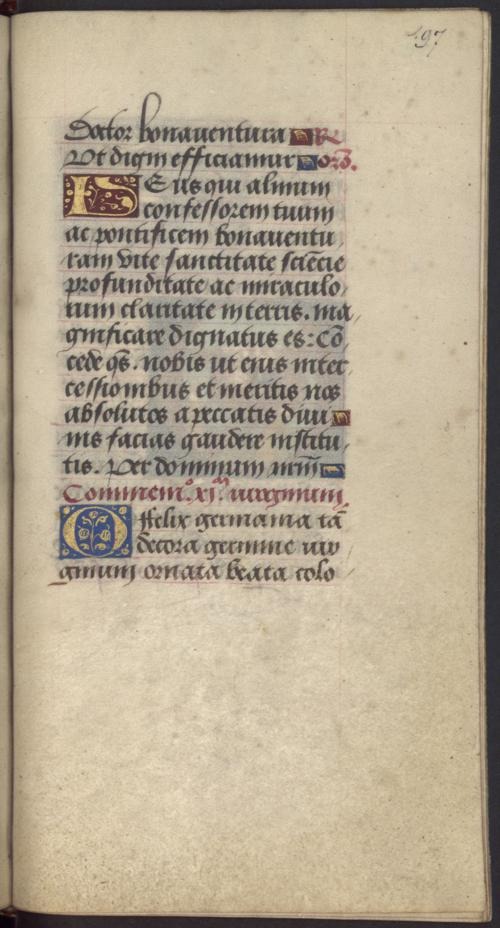 197
Doctor bonauentura R
Vt digni efficiamur or̃o.
DEus qui almum
confessorem tuum
ac pontificem bonauentu
ram vite sanctitate sciẽcie
profunditate ac miraculo
rum claritate in terris. ma
gnificare dignatus es: Cõ
cede q̃s. nobis ut eius inter
cessionibus et meritis nos
absolutos a peccatis diui
nis facias gaudere institu
tis. Per dominum nr̃m
Commem.º xj.ᵐ virginum
O ffelix germania tã
decora germine vir
ginum ornata beata colo